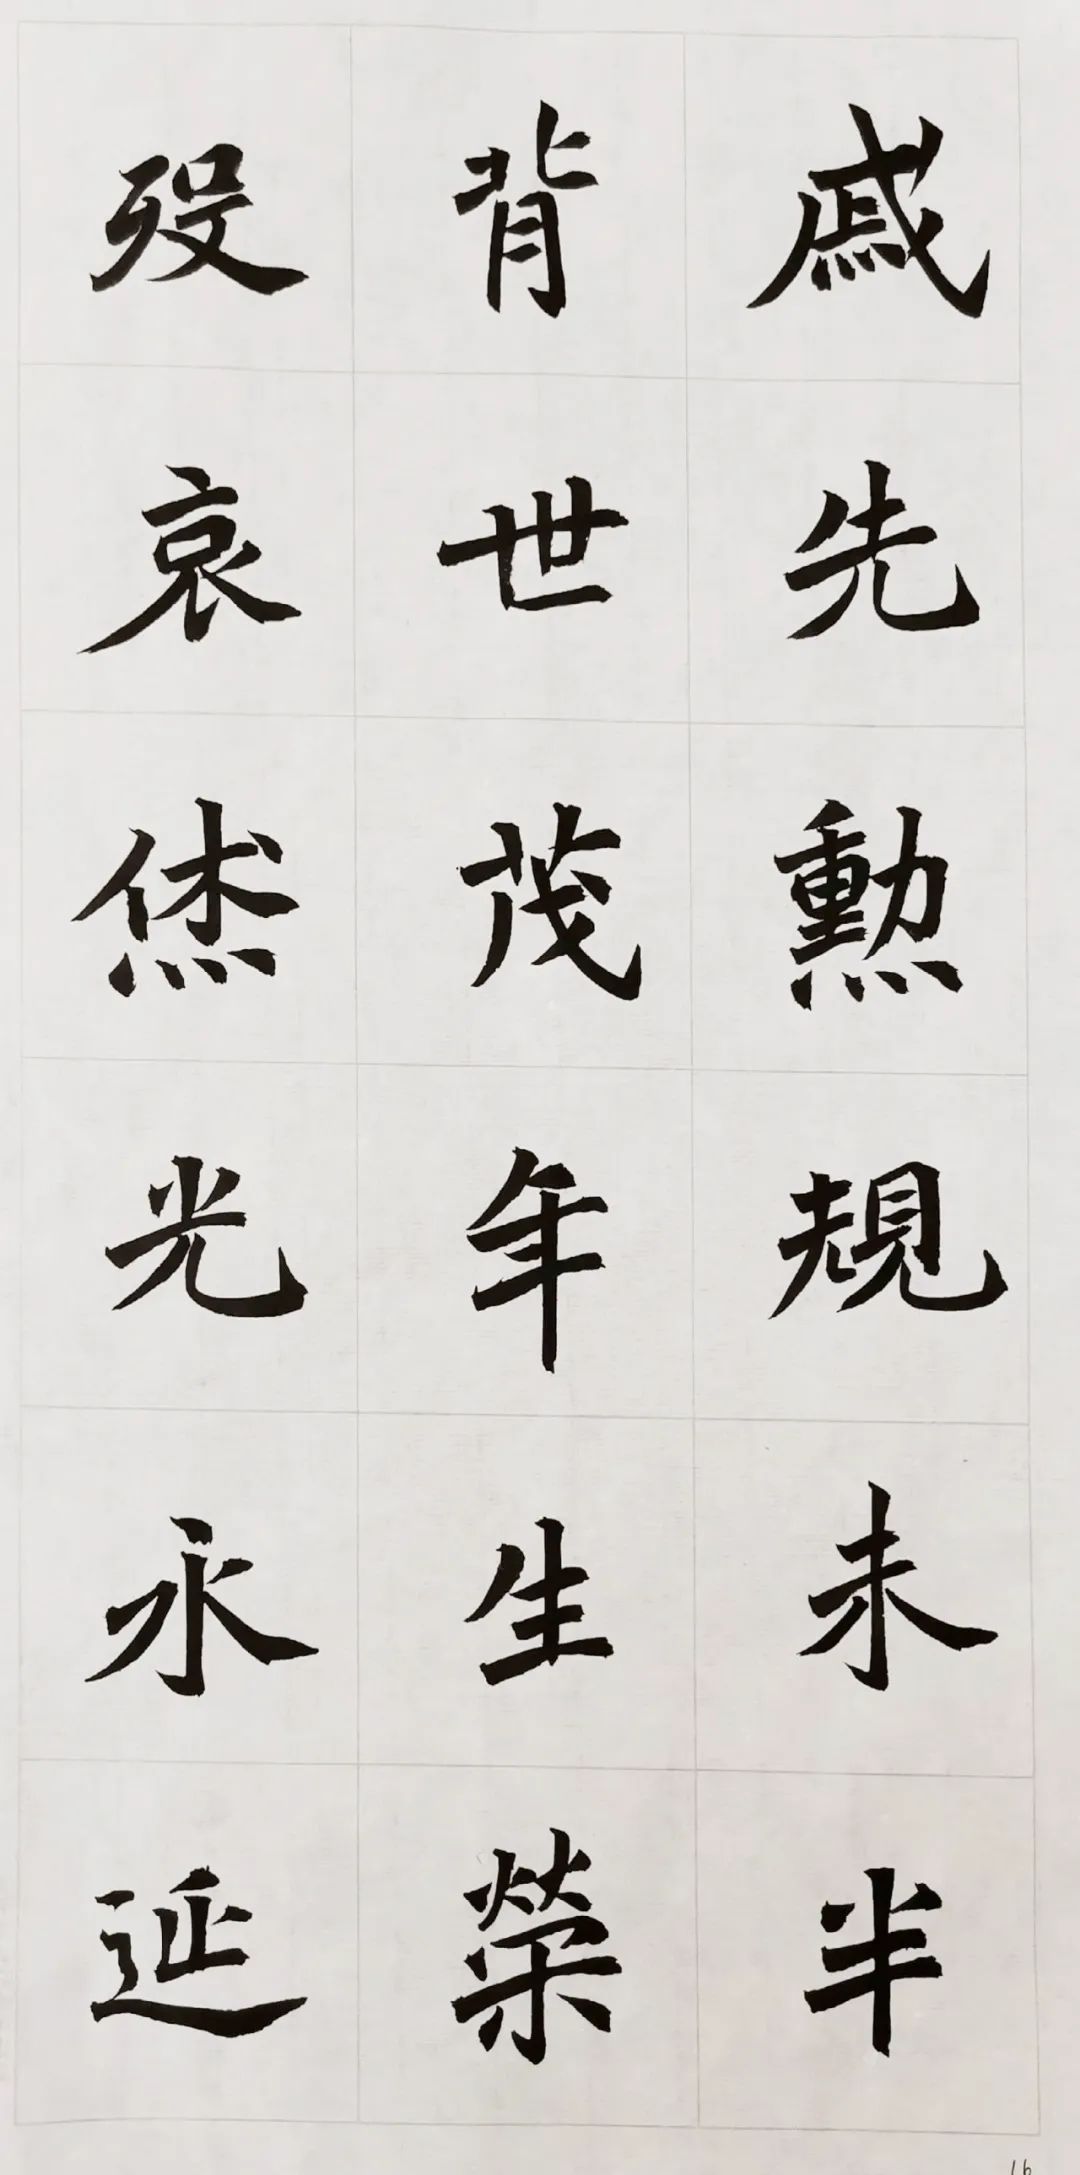 戚先勳規未半
背世茂年生榮
歿哀烋光永延
16